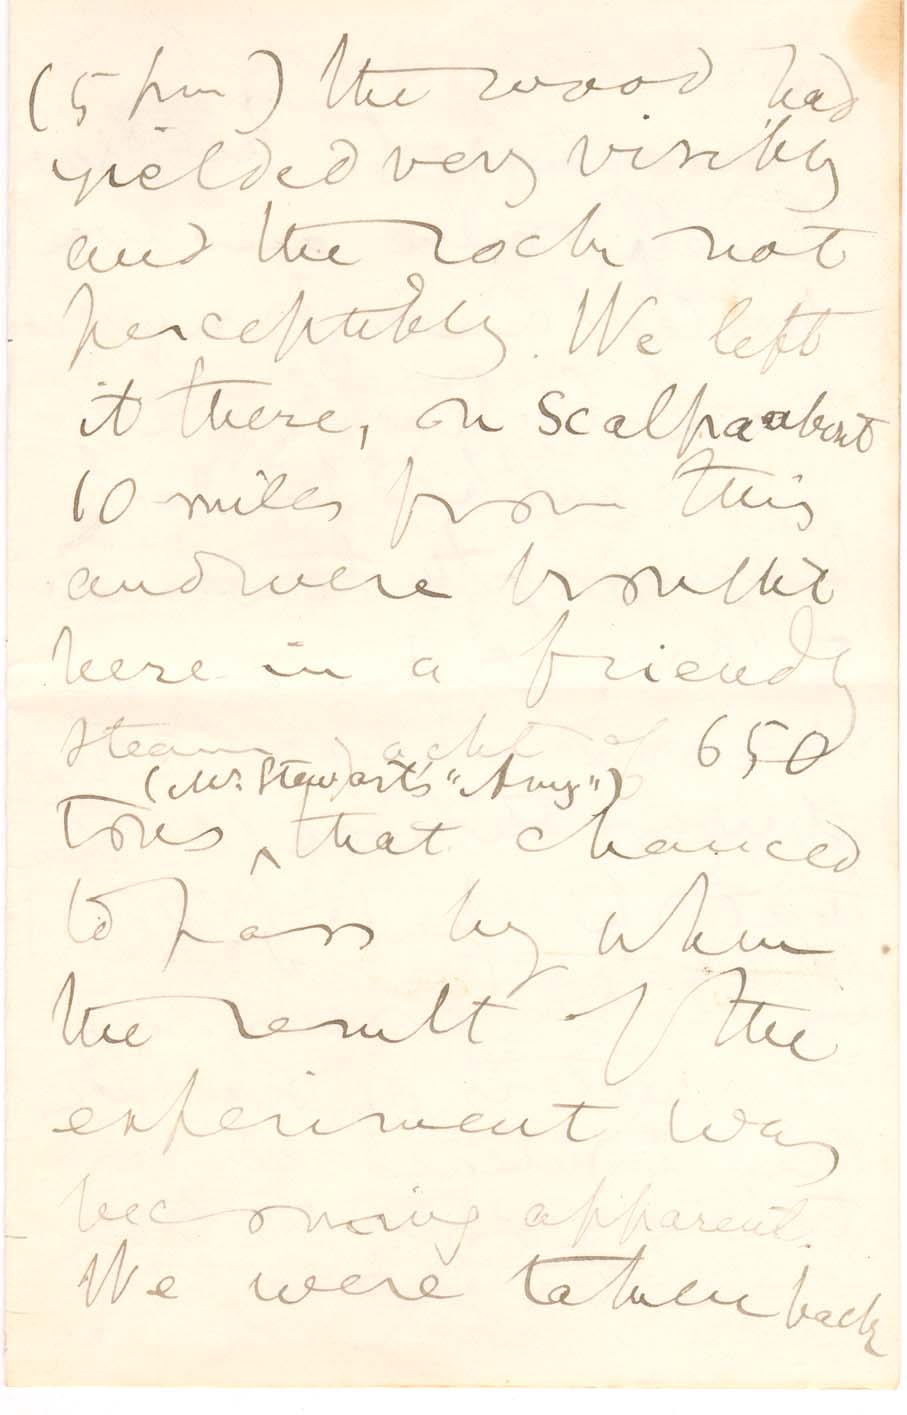 (5 pm) the wood had
yielded very visibly
and the rock not
perceptibly. We left
it there, on Scalpa about
10 miles from this
and were brought
here in a friendly
steam yacht of 650
(Mr. Stewart's "Amy")
tons ^ that chanced
to pass by when
the result of the
experiment was
becoming apparent.
We were taken back